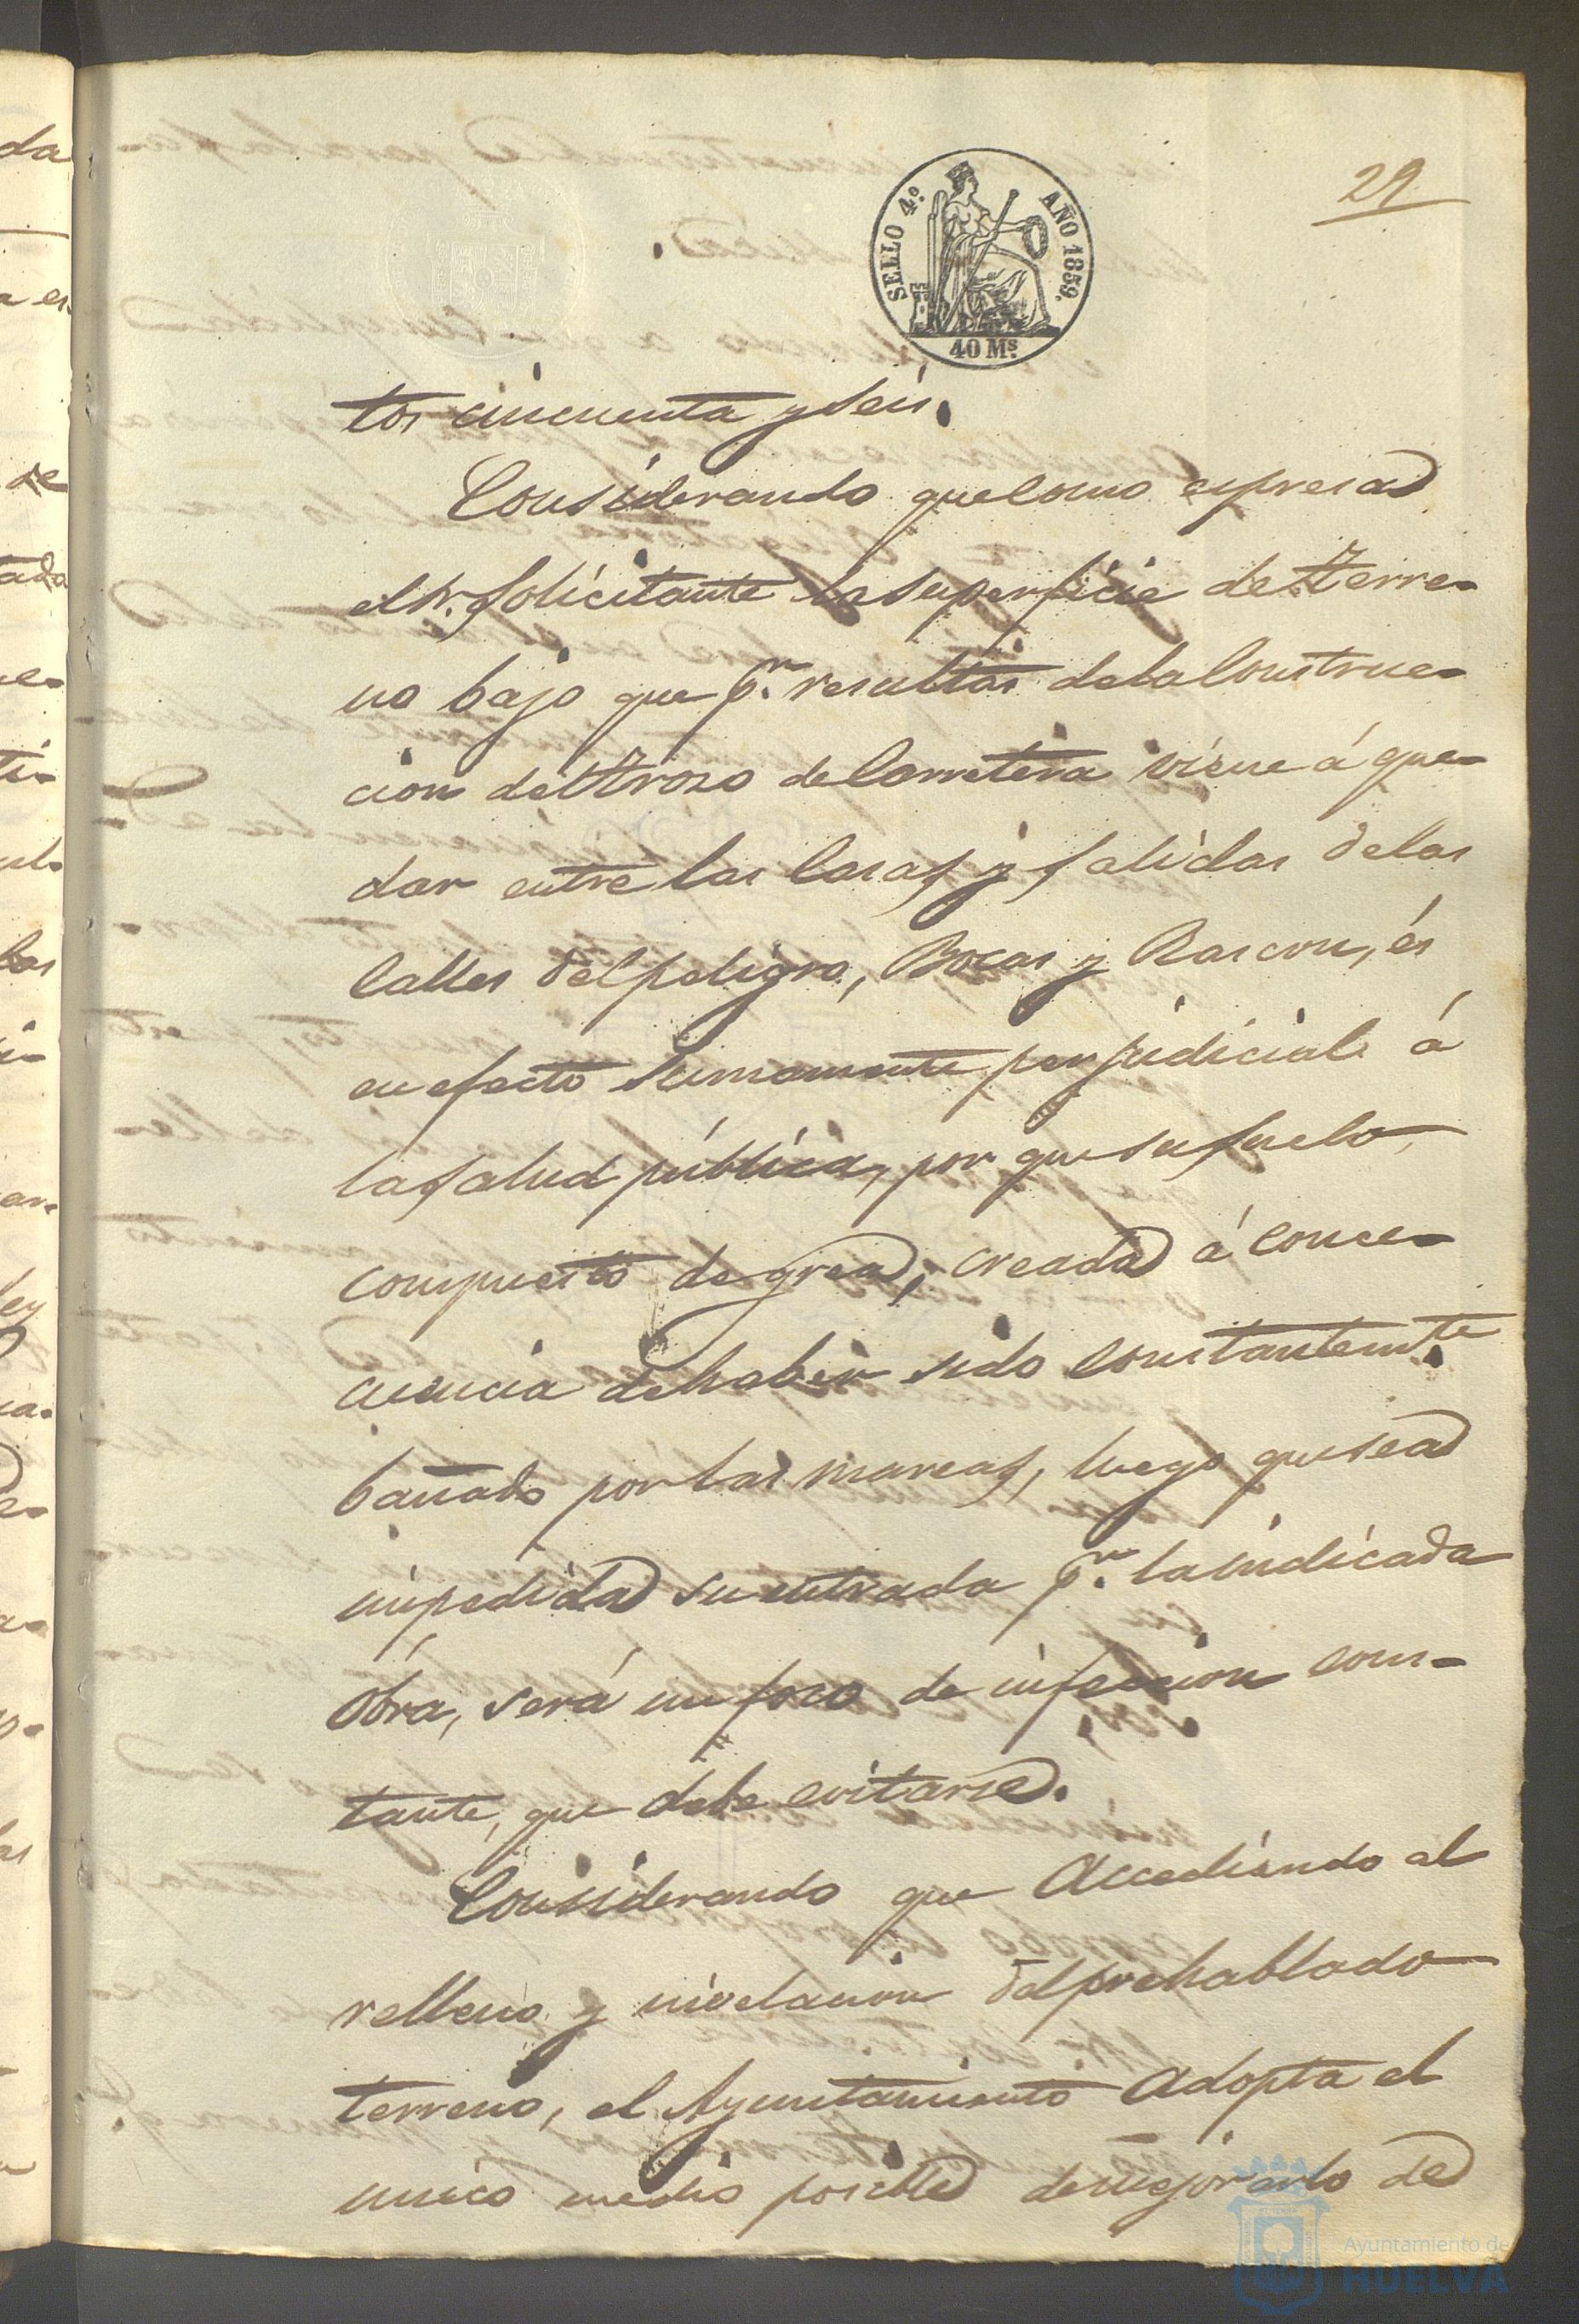 29
SELLO 4.º AÑO 1859.
40 Ms.
tos cincuenta y seis.
Considerando que como espresa
el Sr. solicitante la superficie de terre-
no bajo que p.r resultas de la Construc-
cion del trozo de Carretera viene á que-
dar entre las Casas y salidas de las
Calles del peligro, Bocas y Rascon, és
en efecto sumamente perjudicial á
la salud pública, por que su suelo,
compuesto de greda, creada á conse-
cuencia de haber sido constantem.te
bañado por las mareas, luego que sea
impedida su entrada p.r la indicada
óbra, será un foco de infeccion cons-
tante, que debe evitarse.
Considerando que Accediendo al
relleno y nivelacion del prehablado
terreno, el Ayuntamiento Adopta el
unico medio posible de mejorarlo de
da
de
tada
las
Ayuntamiento de
HUELVA